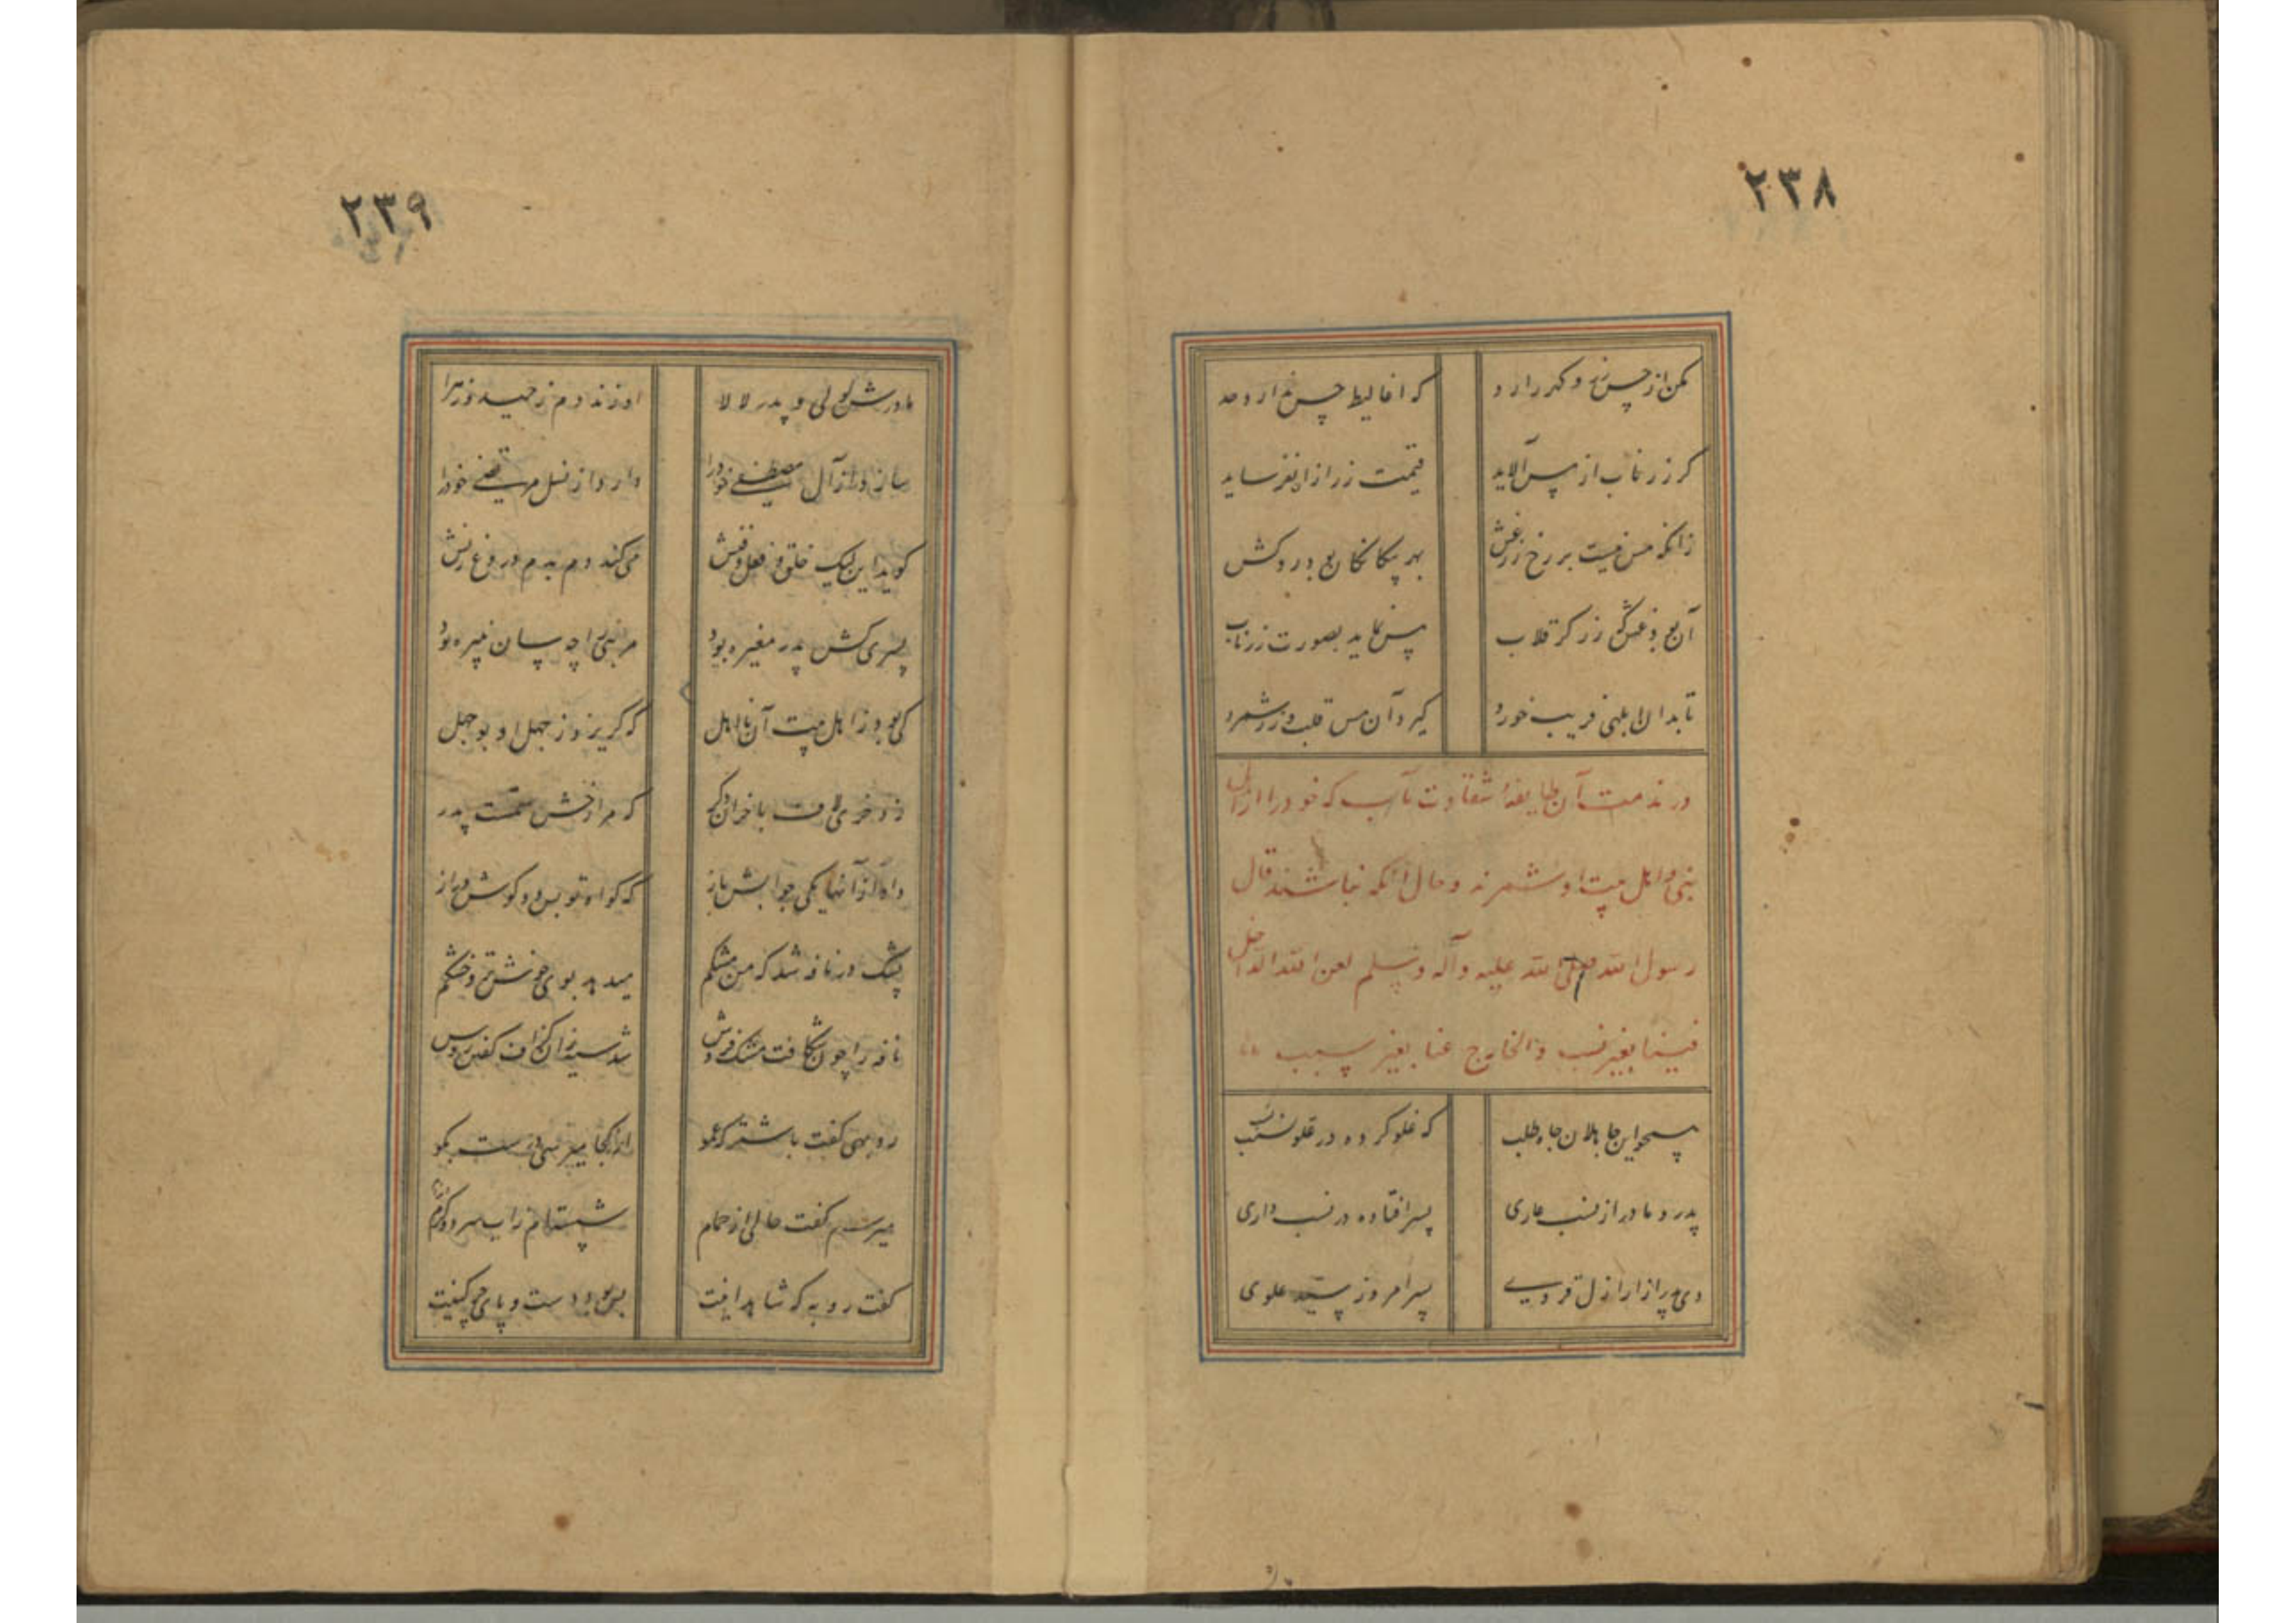 ٢٣٨
مکن از چس زند و کدر را رد
که اغالیط چس ندارد حد
کر زر ناب از مس آلاید
قیمت زر ازان نفرساید
زانکه مس نیست بر رخ زر غش
بهر پیکانکان بود روکش
آن بود غش زر کر قلاب
مس نماید بصورت زر ناب
تا بدان ابلهی فریب خورد
کیرد آن مس قلب و زر شمرد
در مذمت آن طایفهٔ شقاوت مآب که خود را از آل
نبی و اهل بیت او شمرند و حال آنکه نباشند قال
رسول الله صلی الله علیه وآله وسلم لعن الله الداخل
فینا بغیر نسب والخارج عنا بغیر سبب
همچو این جاهلان جاه طلب
که غلو کرده در علو نسب
پدر و مادر از نسب عاری
پسر افتاده در نسب داری
دی پدر از اراذل قروی
پسر امروز سید علوی
٢٣٩
مادرش لولی و پدر لالا
او زند دم ز حیدر و زهرا
سازد از آل مصطفی خود را
دارد از نسل مرتضی خود را
کوید این لیک خلق و فعل و منش
می کند دم بدم دروغ زنش
پسری کش پدر مغیره بود
مر نبی را چه سان نبیره بود
کی بود ز اهل بیت آن نااهل
که کریزد ز جهل او بوجهل
زد خری لاف با خران دکر
که مرا رخش رستمست پدر
داد از آنها یکی جوابش باز
که کواه تو بس دو کوش دراز
پشک در نافه شد که من مشکم
میدهد بوی خوش تر و خشکم
نافه را چون شکافت مشک فروش
شد سیه زان کزاف کفتن روش
روبهی کفت با شتر که عمو
از کجا میرسی درست بکو
میرسم کفت حالی از حمام
شسته ام ز آب سرد و کرم اندام
کفت روبه که شاهد اینت
بس بود دست و پای چرکینت